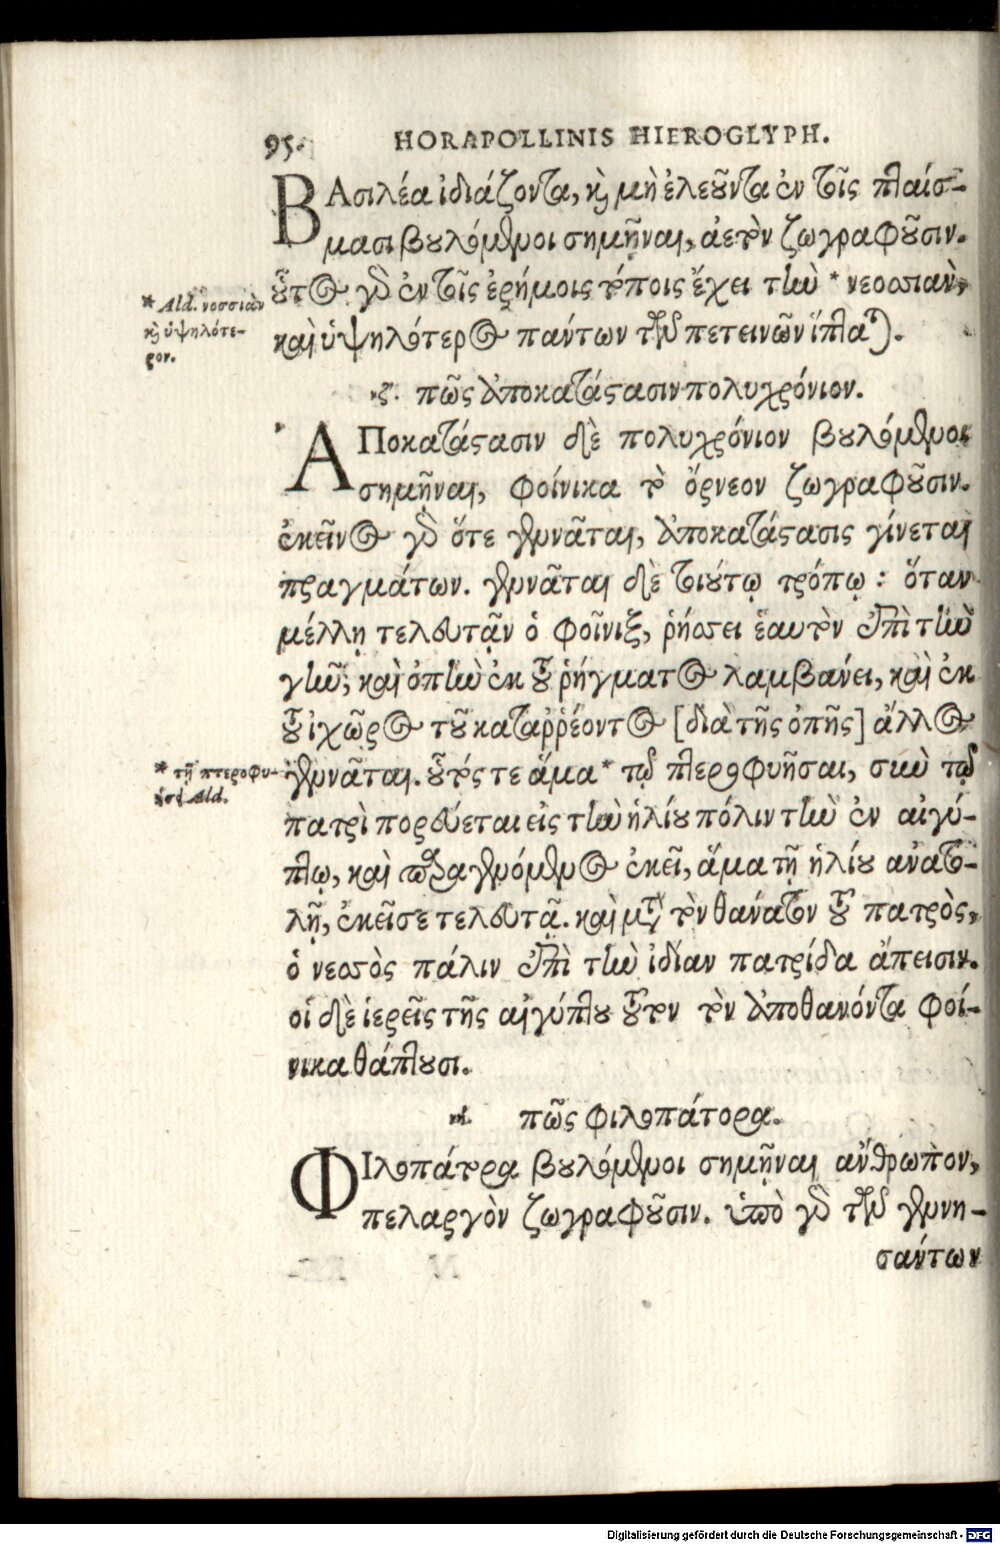 95.
HORAPOLLINIS HIEROGLYPH.
ΒΑσιλέα ἰδιάζοντα, καὶ μὴ ἐλεοῦντα ἐν τοῖς πλαίσ-
μασι βουλόμενοι σημῆναι, ἀετὸν ζωγραφοῦσιν.
οὗτος γὸ ἐν τοῖς ἐρήμοις τόποις ἔχει τὴν * νεοσσιαν,
καὶ ὑψηλότερος πάντων τῶν πετεινῶν ἵπταται.
* Ald. νοσσιὰν
καὶ ὑψηλότε-
ρον.
νζ. πῶς ἀποκατάστασιν πολυχρόνιον.
ΑΠοκατάστασιν δὲ πολυχρόνιον βουλόμενοι
σημῆναι, φοίνικα τὸ ὄρνεον ζωγραφοῦσιν.
ἐκεῖνος γὸ ὅτε γεννᾶται, ἀποκατάστασις γίνεται
πραγμάτων. γεννᾶται δὲ τοιούτῳ τρόπῳ : ὅταν
μέλλῃ τελευτᾷν ὁ φοῖνιξ, ῥήσσει ἑαυτὸν ἐπὶ τὴν
γῆν, καὶ ὀπὴν ἐκ τοῦ ῥήγματος λαμβάνει, καὶ ἐκ
τοῦ ἰχῶρος τοῦ καταῤῥέοντος [διὰ τῆς ὀπῆς] ἄλλος
γεννᾶται. οὗτός τε ἅμα * τῷ πτεροφυῆσαι, σὺν τῷ
* τῇ πτεροφυ-
ήσει Ald.
πατρὶ πορεύεται εἰς τὴν ἡλίου πόλιν τὴν ἐν αἰγύ-
πτῳ, καὶ παραγενόμενος ἐκεῖ, ἅμα τῇ ἡλίου ἀνατο-
λῇ, ἐκεῖσε τελευτᾷ. καὶ μετὰ τὸν θάνατον τοῦ πατρὸς,
ὁ νεοσσὸς πάλιν ἐπὶ τὴν ἰδίαν πατρίδα ἄπεισιν.
οἱ δὲ ἱερεῖς τῆς αἰγύπτου τοῦτον τὸν ἀποθανόντα φοί-
νικα θάπτουσι.
νη. πῶς φιλοπάτορα.
ΦΙλοπάτορα βουλόμενοι σημῆναι ἄνθρωπον,
πελαργὸν ζωγραφοῦσιν. ὑπὸ γὸ τῶν γεννη-
σάντων